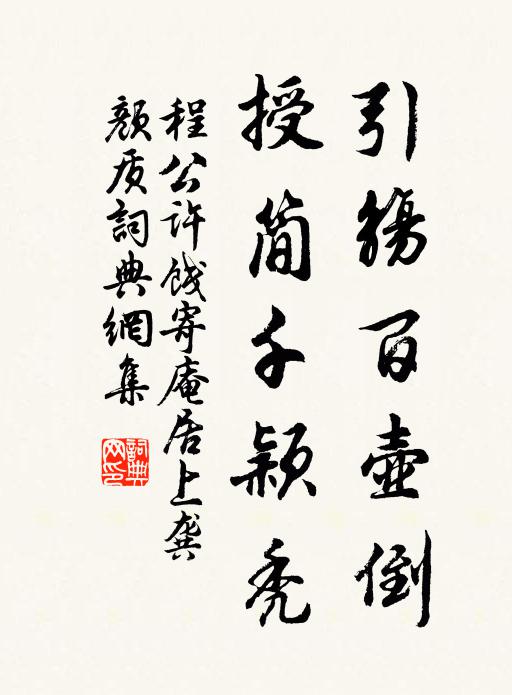 引觞百壶倒
授简千颖秃
程公许饯寄庵居上龚
颜质詞典網集
詞典網印